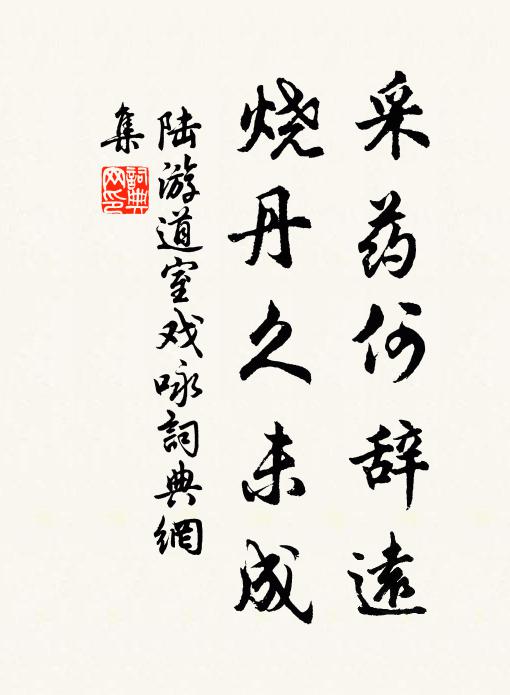 采药何辞遠
烧丹久未成
陆游道室戏咏詞典網
集
詞典網印